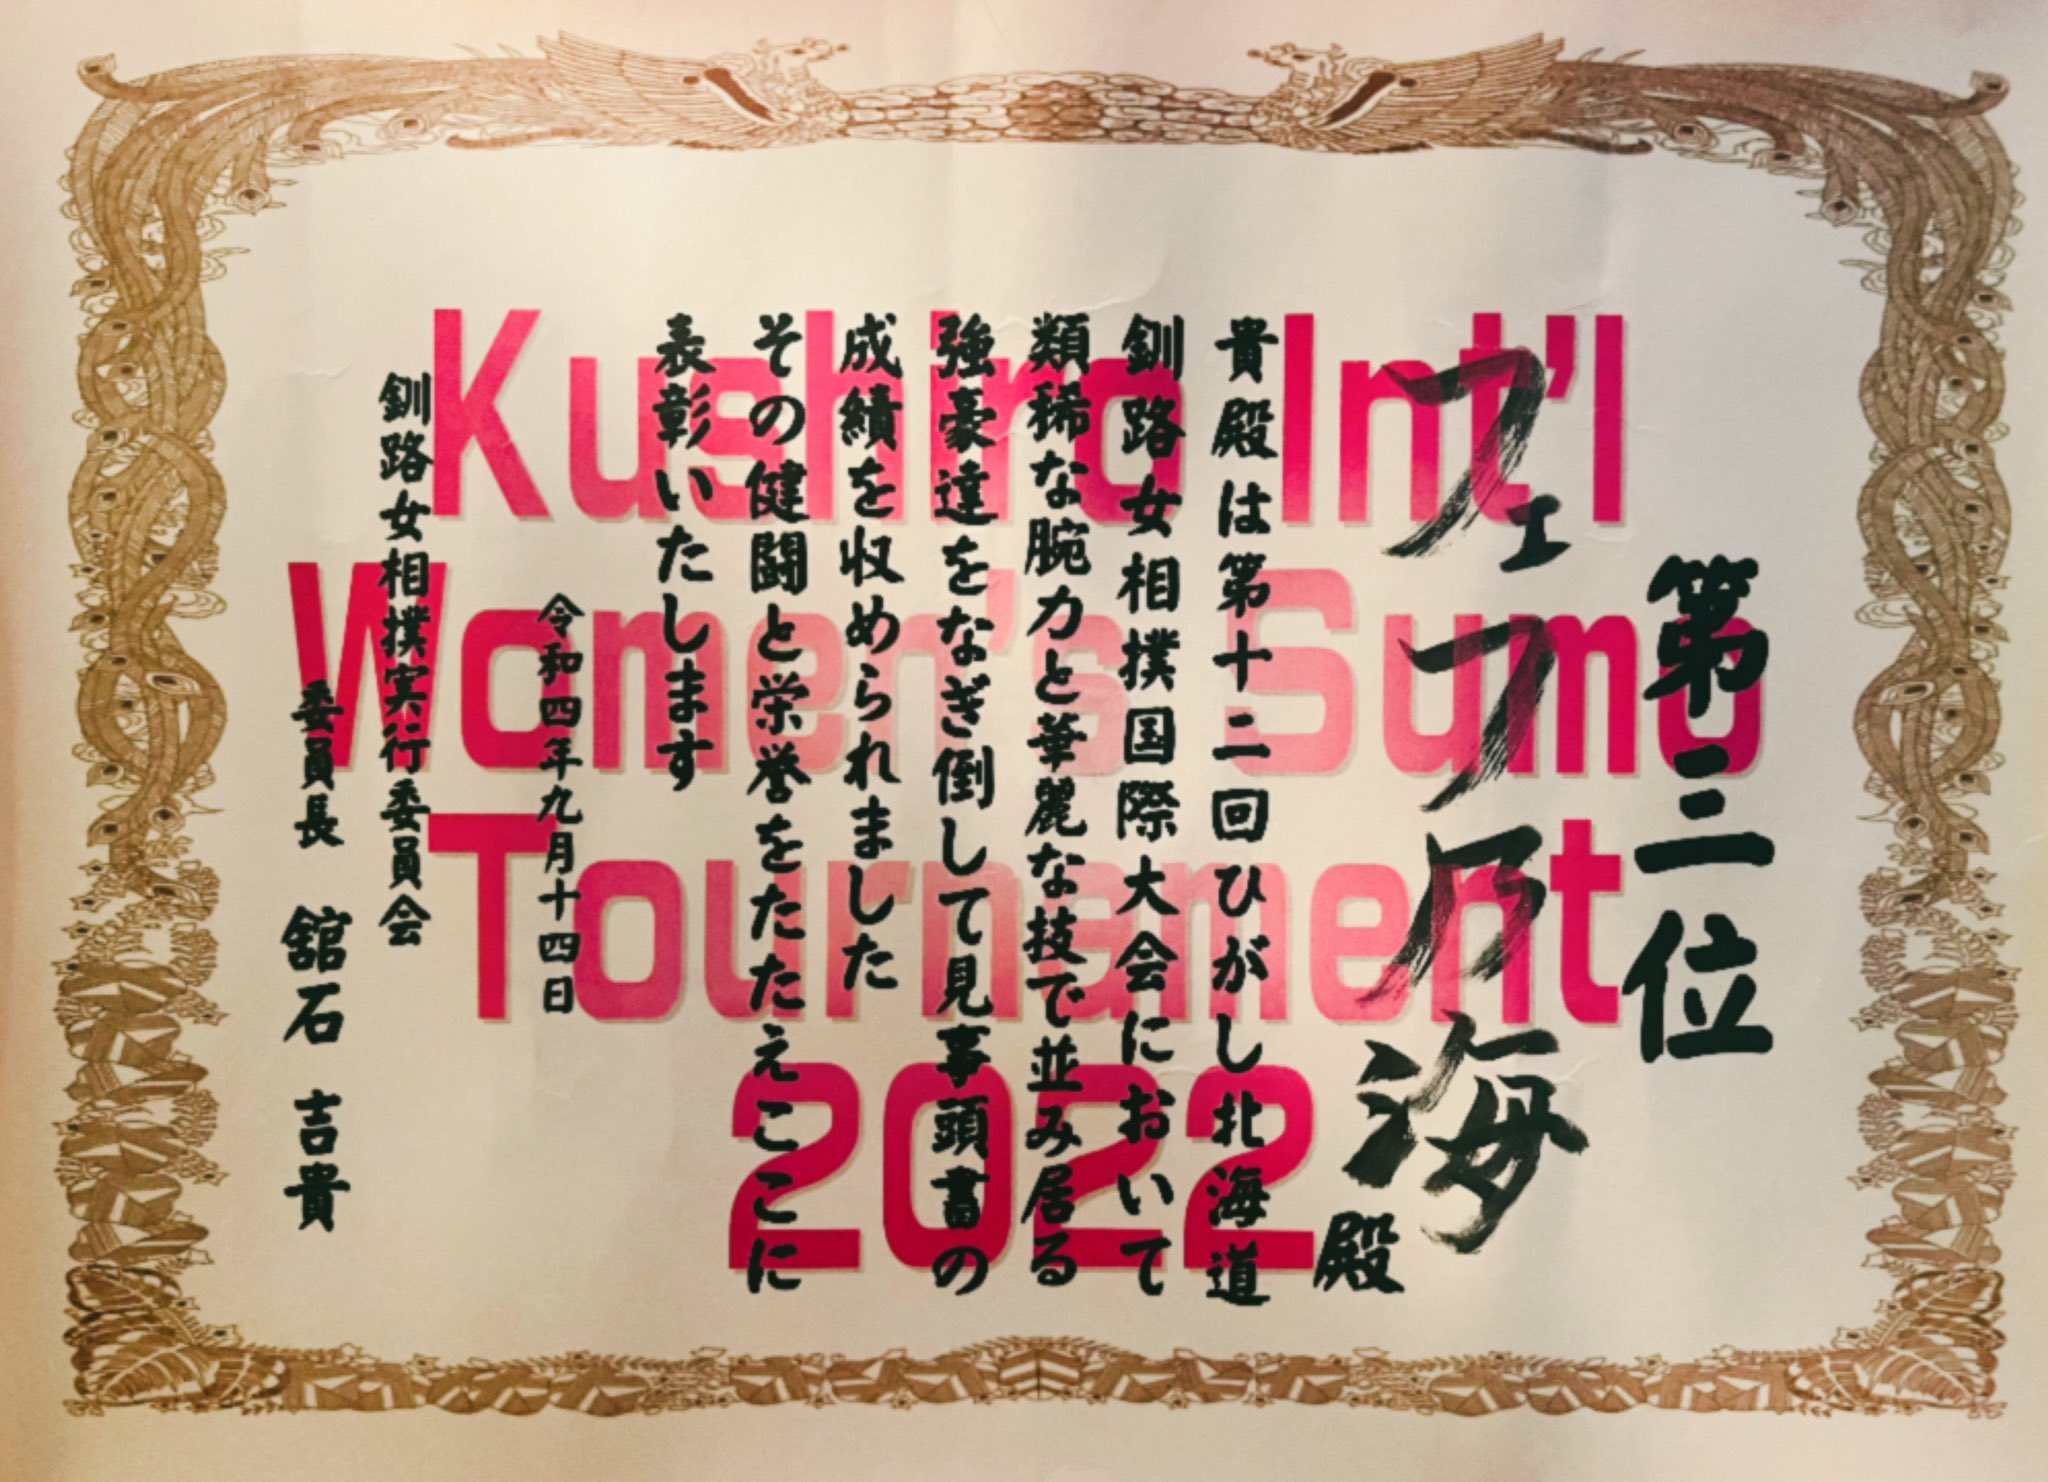 Kushiro Int'l
Women's Sumo
Tournament
2022
第三位
フェフ乃海
殿
貴殿は第十二回ひがし北海道
釧路女相撲国際大会において
類稀な腕力と華麗な技で並み居る
強豪達をなぎ倒して見事頭書の
成績を収められました
その健闘と栄誉をたたえここに
表彰いたします
令和四年九月十四日
釧路女相撲実行委員会
委員長 舘石 吉貴